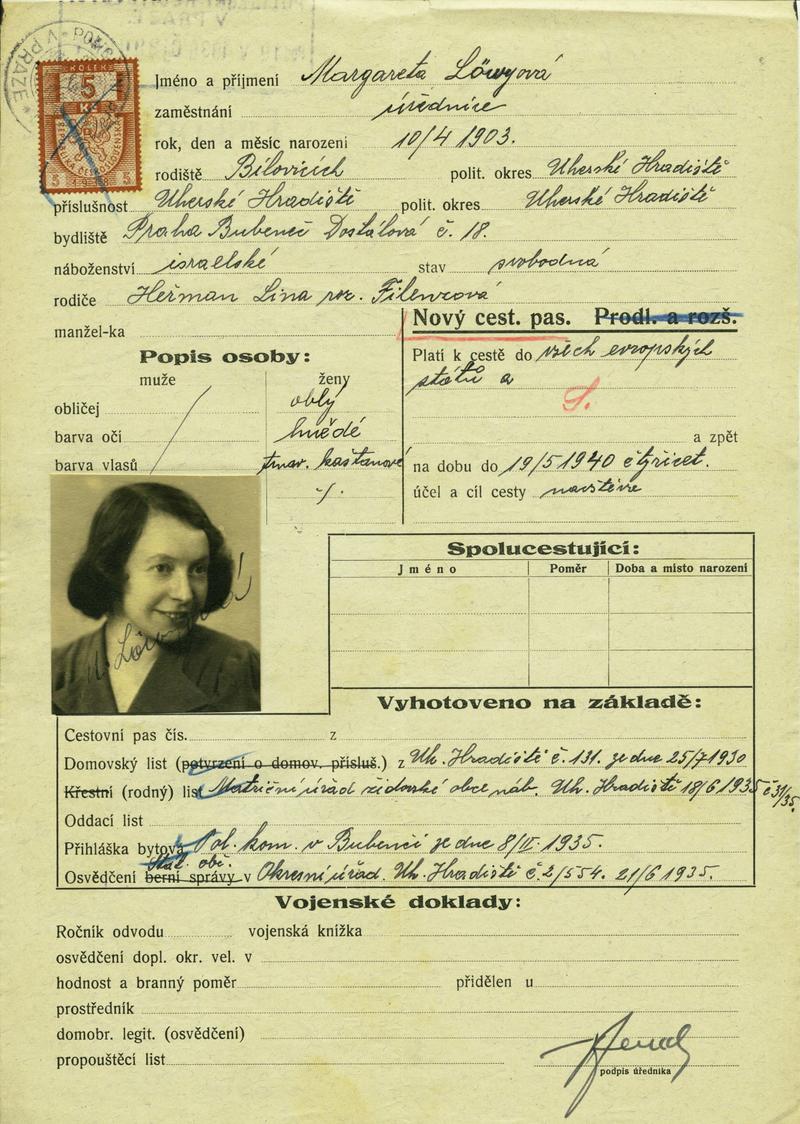 V PRAZE
V PRAZE * POMO
KOLEK
5
Kč
ČESKOSLOVENSKÁ
5 5
Jméno a příjmení Margareta Löwyová
zaměstnání úřednice
rok, den a měsíc narození 10/4 1903.
rodiště Bílovicích polit. okres Uherské Hradiště
příslušnost Uherské Hradiště polit. okres Uherské Hradiště
bydliště Praha Bubeneč Dostálová č. 18.
náboženství israelské stav svobodná
rodiče Heřman Lina roz.
manžel-ka
Nový cest. pas. Prodl. a rozš.
Popis osoby:
muže ženy
obličej oblý
barva očí hnědé
barva vlasů tmav. kaštanové
./.
Platí k cestě do všech evropských
států a
S.
a zpět
na dobu do 19/5 1940 čtyřicet.
účel a cíl cesty návštěva
M. Löwyová
Spolucestující:
Jméno Poměr Doba a místo narození
Vyhotoveno na základě:
Cestovní pas čís. z
Domovský list (potvrzení o domov. přísluš.) z Uh. Hradiště č. 131. ze dne 25/7 1930
Křestní (rodný) list Matriční úřad židovské obce náb. Uh. Hradiště 18/6 1935 č 31/35.
Oddací list
Přihláška bytová Pol. kom. v Bubenči ze dne 8/II. 1935.
Stát. obč.
Osvědčení berní správy v Okresní úřad. Uh. Hradiště č. 2/554. 21/6 1935.
Vojenské doklady:
Ročník odvodu vojenská knížka
osvědčení dopl. okr. vel. v
hodnost a branný poměr přidělen u
prostředník
domobr. legit. (osvědčení)
propouštěcí list
podpis úředníka